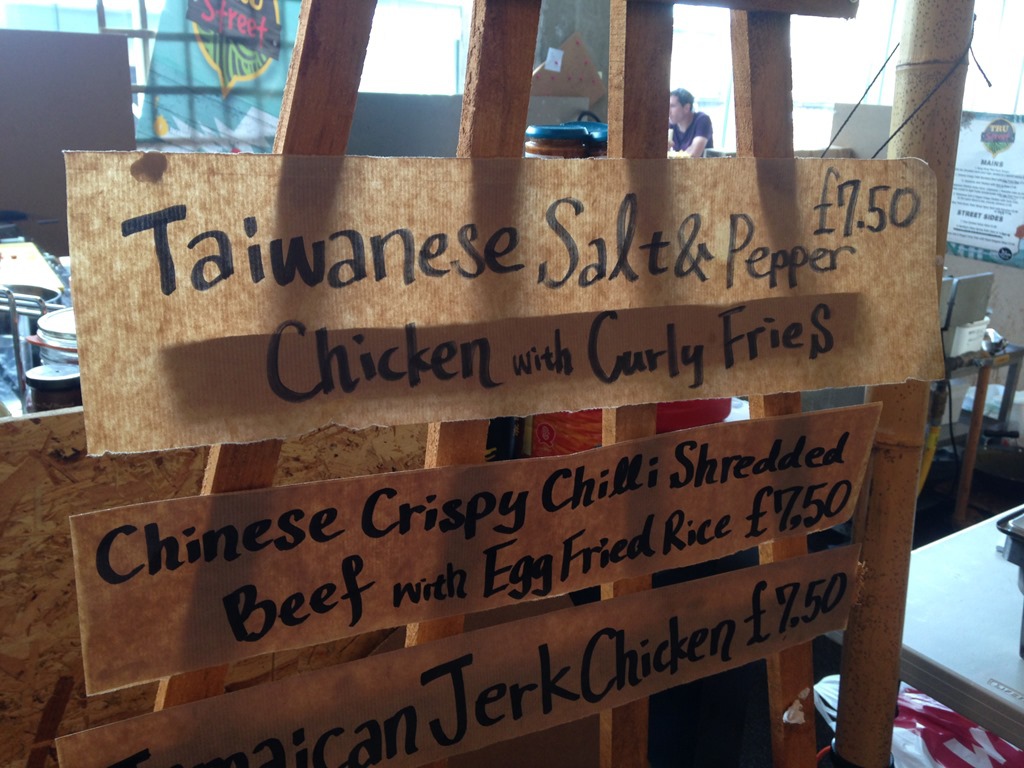 Street
Taiwanese Salt & Pepper £7.50
Chicken with Curly Fries
Chinese Crispy Chilli Shredded
Beef with Egg Fried Rice £7.50
Jamaican Jerk Chicken £7.50
TRU
MAINS
STREET SIDES